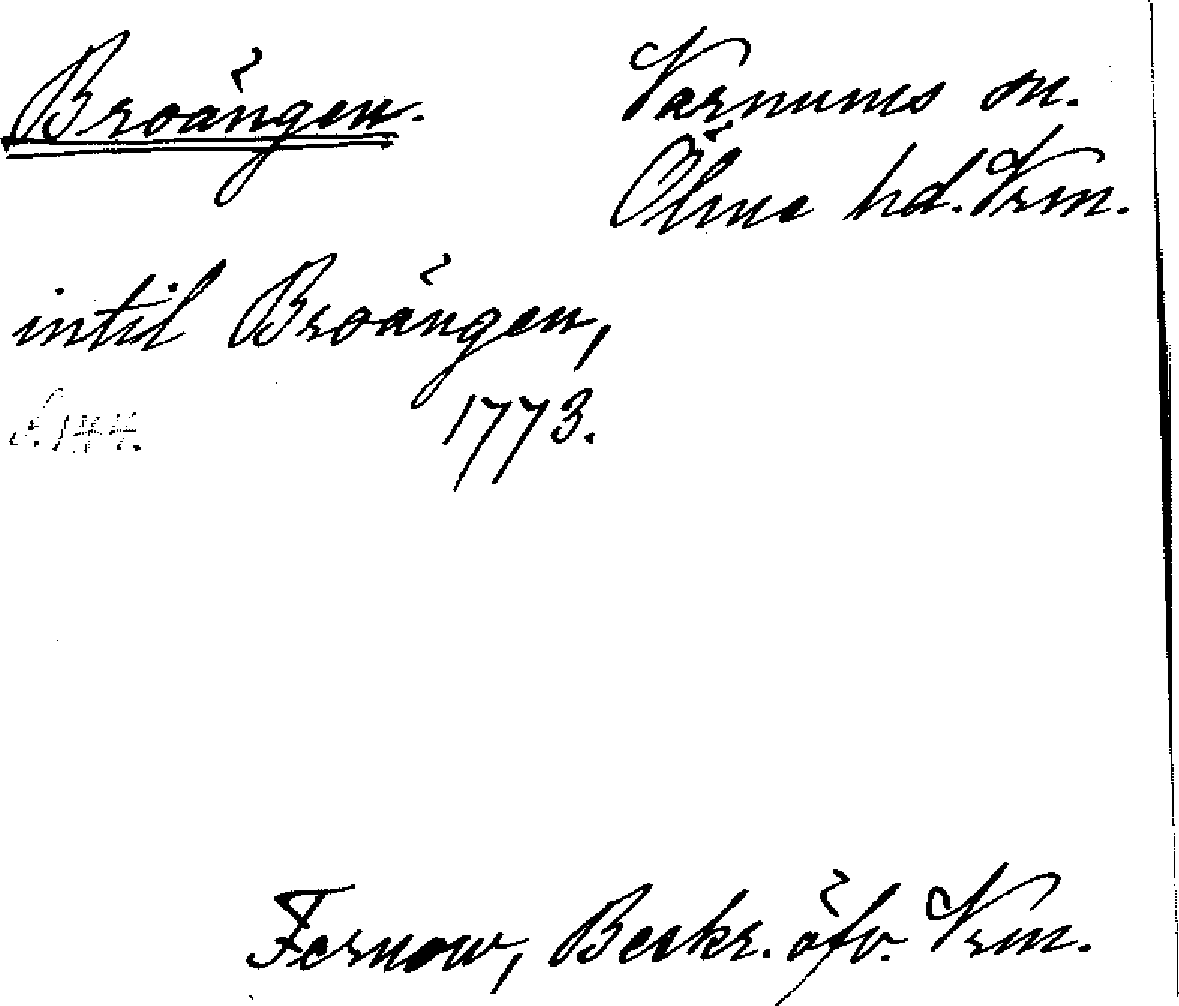 Broängen.
Varnums sn.
Ölme hd. Vrm.
intil Broängen,
s. 144. 1773.
Fernow, Beskr. öfv. Vrm.